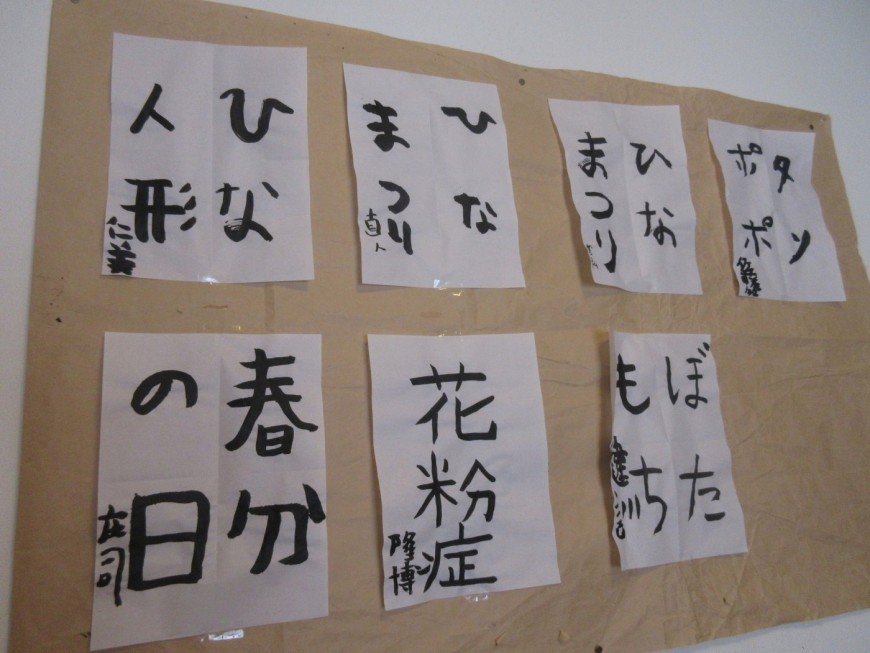 ひな
人形
仁美
ひな
まつり
直人
ひな
まつり
タン
ポポ
春分
の日
庄司
花粉症
隆博
ぼた
もち